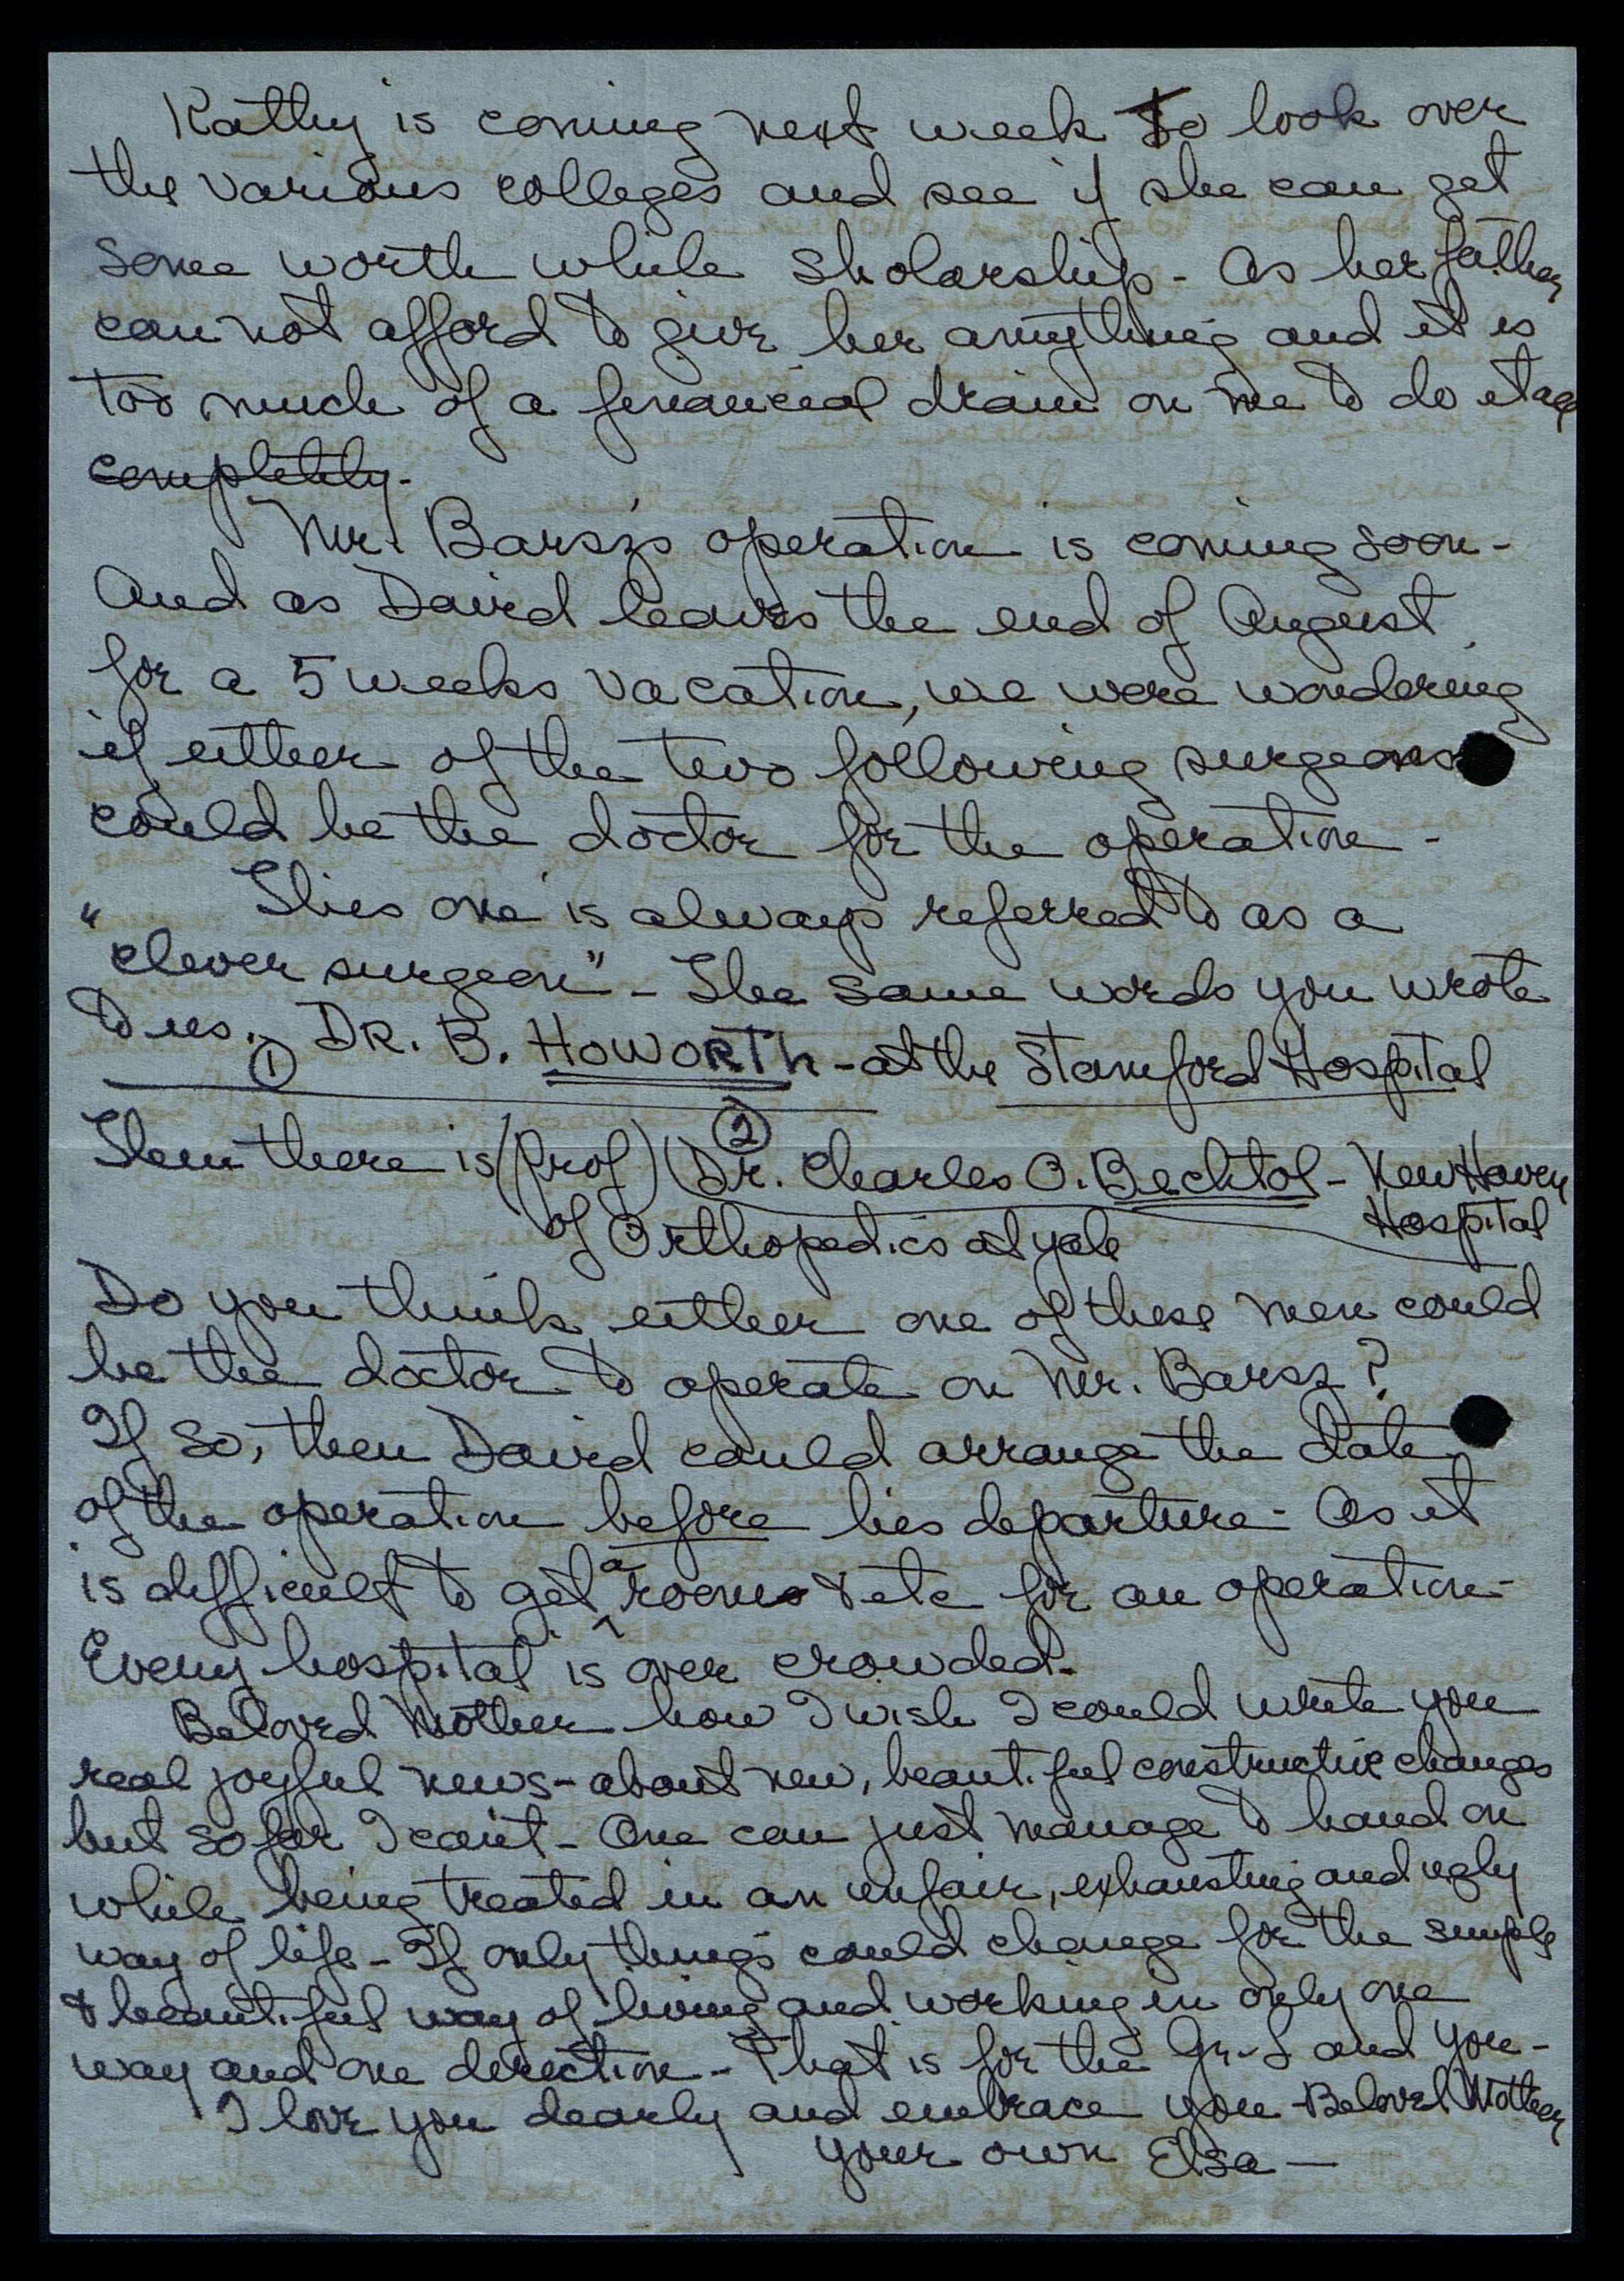 Kathy is coming next week to look over
the various colleges and see if she can get
some worth while sholarship - As her father
can not afford to give her anything and it is
too much of a financial drain on me to do it all
completely.
Mr. Barsz's operation is coming soon -
And as David leaves the end of August
for a 5 weeks vacation, we were wondering
if either of the two following surgeons
could be the doctor for the operation -
" This one is always referred to as a
clever surgeon" - The same words you wrote
to us. ① DR. B. HOWORTH - at the Stamford Hospital
Then there is (Prof) ② (Dr. Charles O. Bechtol - New Haven
of Orthopedics at Yale Hospital
Do you think either one of these men could
be the doctor to operate on Mr. Barsz?
If so, then David could arrange the date
of the operation before his departure - As it
is difficult to get a room & etc for an operation -
Every hospital is over crowded.
Beloved Mother how I wish I could write you
real joyful news - about new, beautiful constructive changes
but so far I can't - One can just manage to hand on
while being treated in an unfair, exhausting and ugly
way of life - If only things could change for the simple
& beautiful way of living and working in only one
way and one direction - That is for the Gr-L and you -
I love you dearly and embrace you - Beloved Mother
your own Elsa —